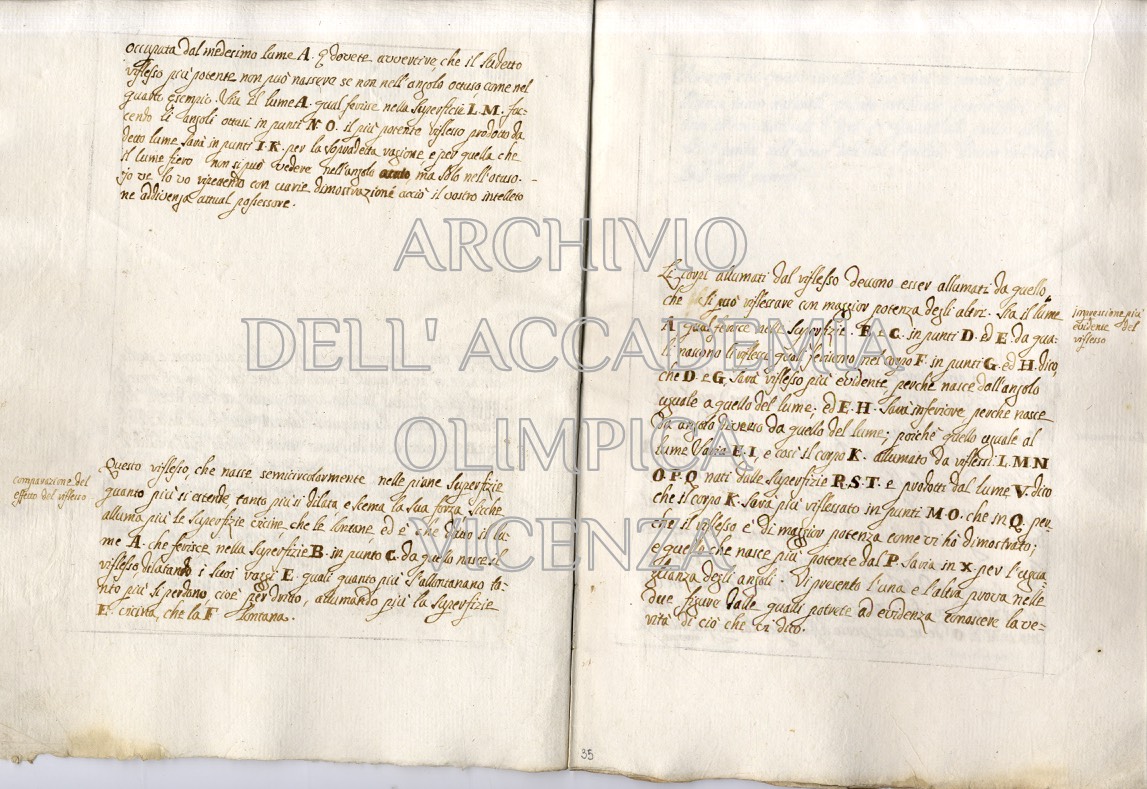 occupata dal medesimo lume A. e dovete avvertire, che il sudetto
riflesso più potente non può nascere se non nell'angolo ottuso come nel
quarto esempio. Sia il lume A. qual ferisce nella superficie L. M. fac-
cendo li angoli ottusi in punti N O. il più potente riflesso prodotto da
detto lume sarà in punti I. K. per la sopradetta ragione, e per quella che
il lume fiero non si può vedere nell'angolo acuto ma solo nell'otuso.
jo ve lo vo ripetendo con varie dimostrazioni acciò il vostro intelleto
ne addivenga attual possessore.
comparazione del
effetto del riflesso
Questo riflesso, che nasse semicircolarmente nelle piane superfizie
quanto più si estende tanto più si dilata e scema la sua forza. Sicchè
alluma più le superfizie vicine, che le lontane, ed è che dato il lu-
me A. che ferisce nella superfizie B. in punto C. da quello nasce il
riflesso, dilatando i suoi raggi E. quali quanto più s'allontanano ta-
nto più si perdono cioè per dritto, allumando più la superfizie
E. vicina, che la F lontana.
ARCHIVIO
DELL' ACCADEMIA
OLIMPICA
VICENZA
Li corpi allumati dal riflesso devono esser allumati da quello,
che si può riflessare con maggior potenza degli altri. Sia il lume
A qual ferisce nelle superfizie. B. e C. in punti D. ed E. da qua-
li nascono li riflessi quali feriscono nel corpo F. in punti G. ed H. dico,
che D. e G. sarà riflesso più evidente, perche nasce dall'angolo
uguale a quello del lume; ed E. H. sarà inferiore perche nasce
da angolo diverso da quello del lume; poichè quello uguale al
lume saria E. I, e così il corpo K. allumato da riflessi L. M. N
O. P. Q. nati dalle superfizie R. S. T. e prodotti dal lume V. dico
che il corpo K. sarà più riflessato in punti M O. che in Q. per-
che il riflesso è di maggior potenza come vi hò dimostrato;
e quello che nasce più potente dal P. saria in X. per l'egua-
glianza degli angoli. Vi presento l'una e l'altra prova nelle
due figure dalle quali potrete ad evidenza conoscere la ve-
rità di ciò che vi dico.
impressione più
evidente del
riflesso
35